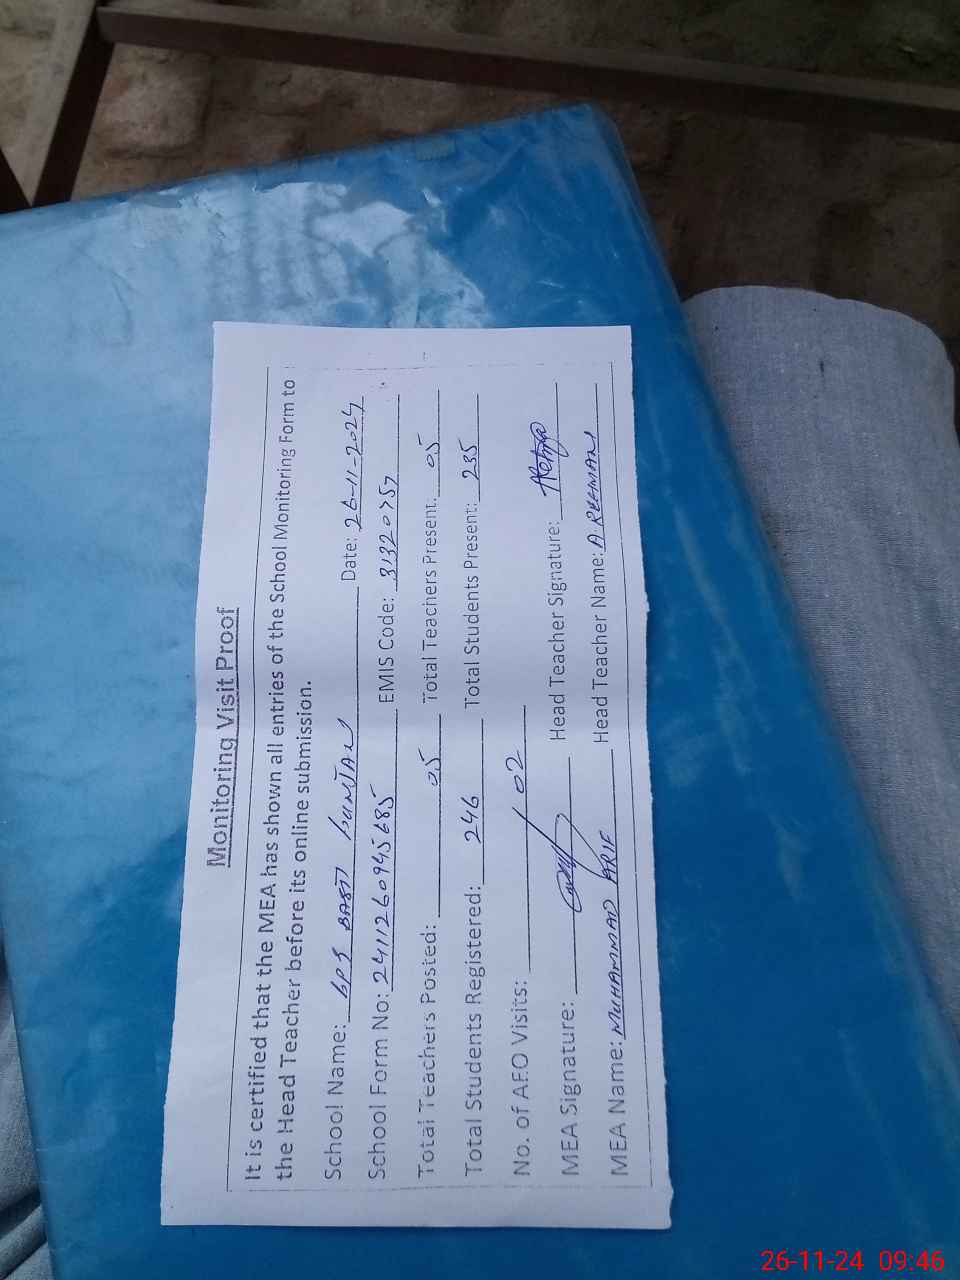 Monitoring Visit Proof
It is certified that the MEA has shown all entries of the School Monitoring Form to
the Head Teacher before its online submission.
School Name: GPS BASTI Date: 26-11-2024
School Form No: 2411260945685 EMIS Code: 31320757
Total Teachers Posted: 05 Total Teachers Present: 05
Total Students Registered: 246 Total Students Present: 235
No. of AEO Visits: 02
MEA Signature: Head Teacher Signature:
MEA Name: MUHAMMAD ARIF Head Teacher Name: A. REHMAN
26-11-24 09:46